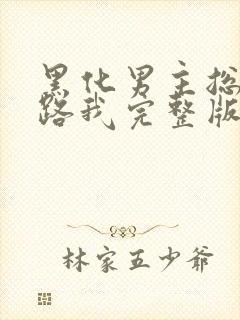 黑化男主总
路我完整版
林家五少爷